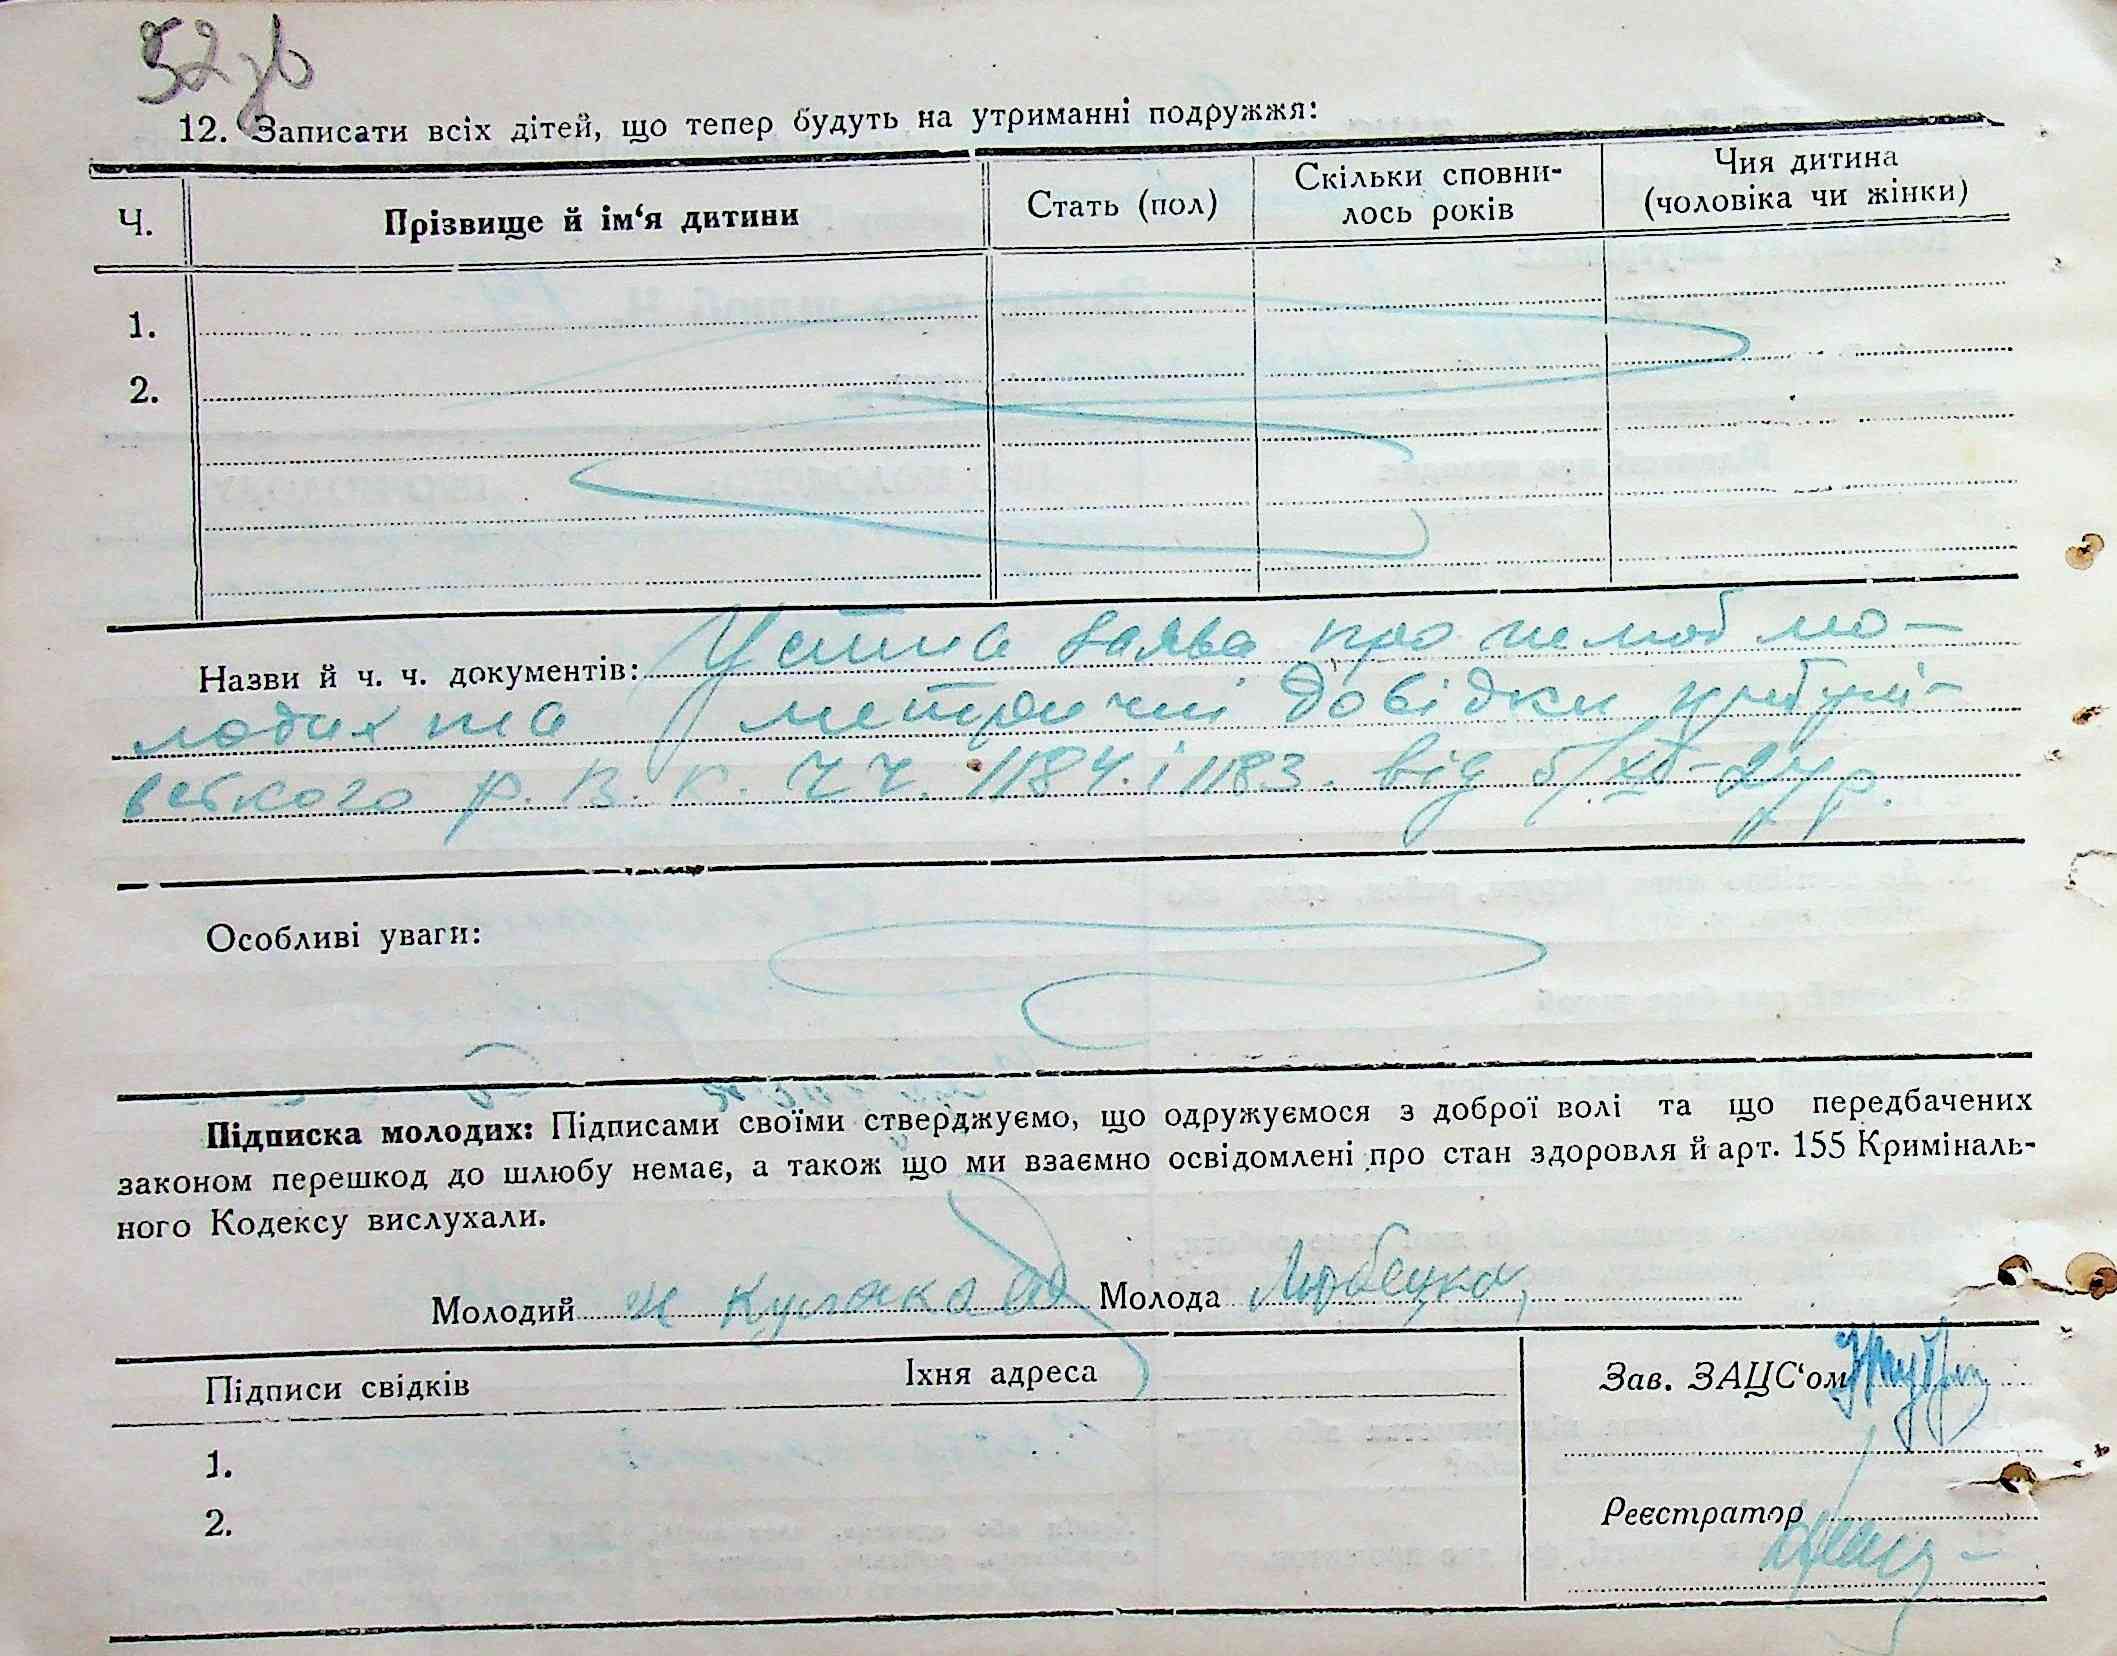 52 зв
12. Записати всіх дітей, що тепер будуть на утриманні подружжя:
Ч.
Прізвище й ім‘я дитини
Стать (пол)
Скільки сповни-
лось років
Чия дитина
(чоловіка чи жінки)
1.
2.
Назви й ч. ч. документів: Устна заява про шлюб мо-
лодих та метричні довідки
вського р. в. к. ч.ч. 1184 і 1183. від
Особливі уваги:
Підписка молодих: Підписами своїми стверджуємо, що одружуємося з доброї волі та що передбачених
законом перешкод до шлюбу немає, а також що ми взаємно освідомлені про стан здоровля й арт. 155 Криміналь-
ного Кодексу вислухали.
Молодий Молода Любецка
Підписи свідків
Іхня адреса
Зав. ЗАЦС‘ом
1.
2.
Реєстратор